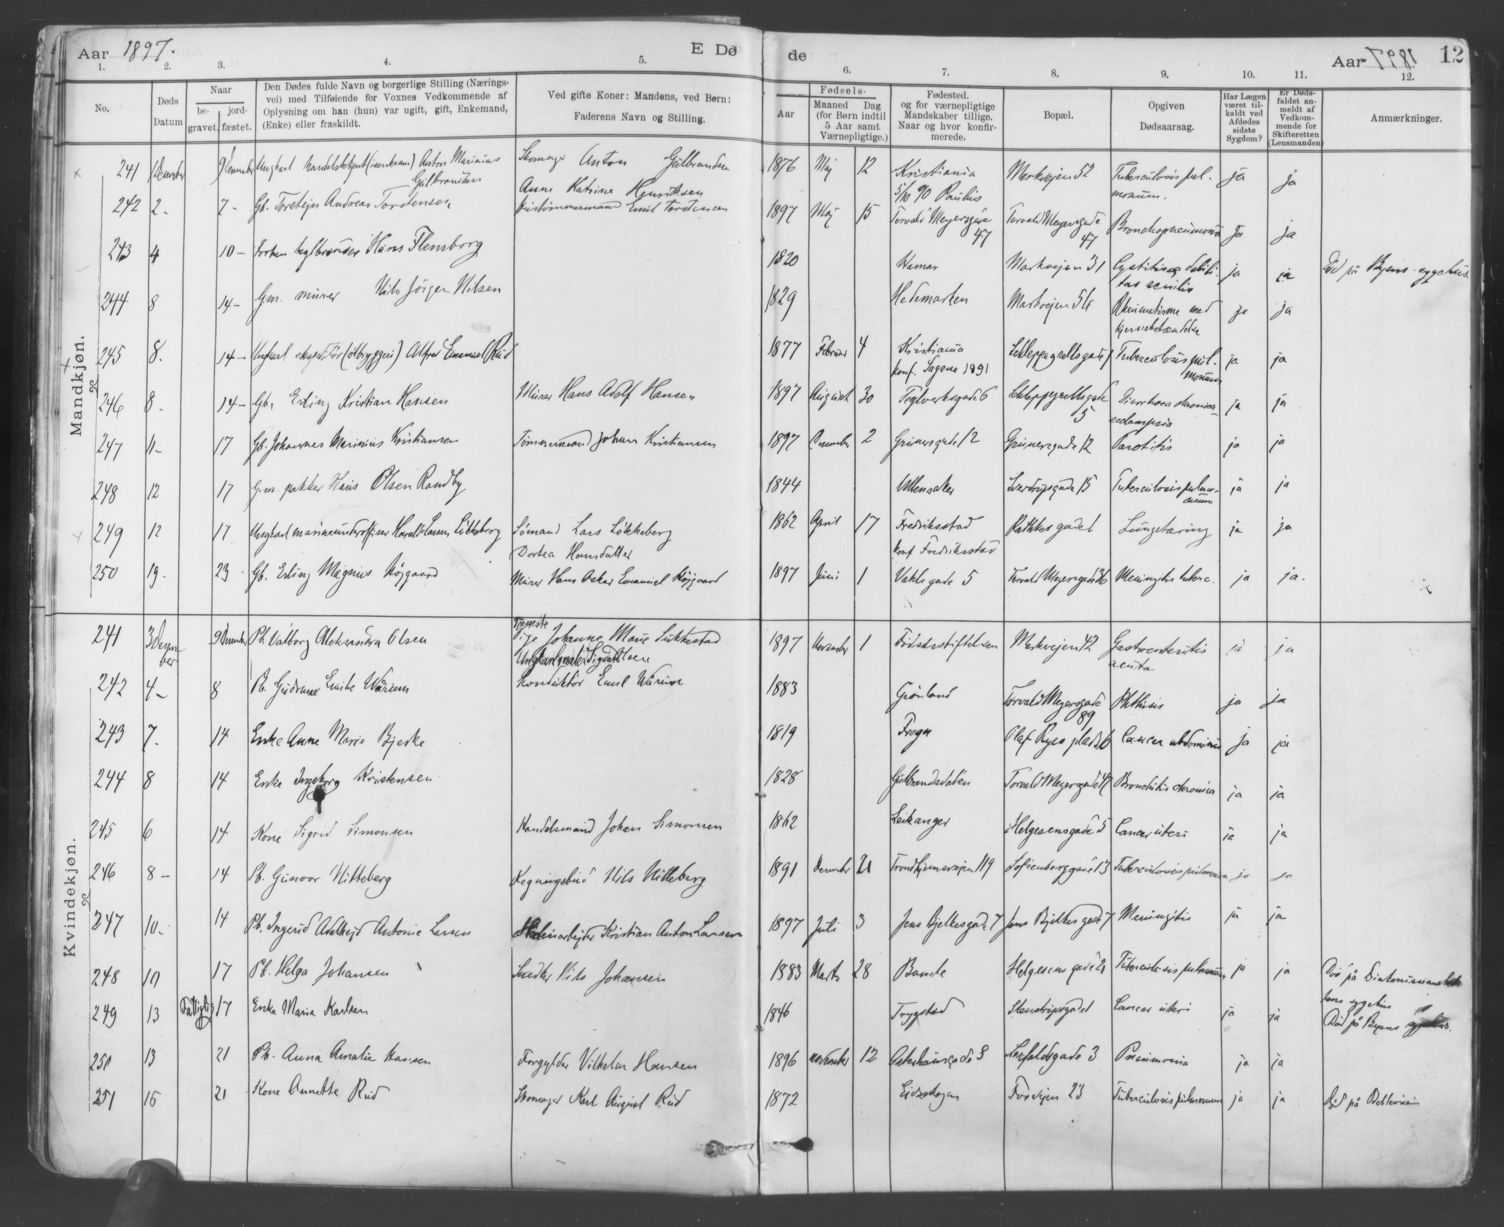 Aar 1897.
E Døde
Aar 1897
12
1. 2. 3. 4. 5. 6. 7. 8. 9. 10. 11. 12.
No.
Døds Datum
Naar
be- gravet.
jord- fæstet.
Den Dødes fulde Navn og borgerlige Stilling (Nærings-
vei) med Tilføiende for Voxnes Vedkommende af
Oplysning om han (hun) var ugift, gift, Enkemand,
(Enke) eller fraskildt.
Ved gifte Koner: Mandens, ved Børn:
Faderens Navn og Stilling.
Fødsels-
Aar
Maaned Dag
(for Børn indtil
5 Aar samt
Værnepligtige.)
Fødested.
og for værnepligtige
Mandskaber tillige.
Naar og hvor konfir-
merede.
Bopæl.
Opgiven
Dødsaarsag.
Har Lægen
været til-
kaldt ved
Afdødes
sidste
Sygdom?
Er Døds-
faldet an-
meldt af
Vedkom-
mende for
Skifteretten
(Lensmanden)
Anmærkninger.
Mandkjøn.
241 1 December 9 December Ungkarl handelsbetjent Anton Marinius Gulbransen Skomager Anton Gulbrandsen 1876 Maj 12 Kristiania 5/10 90 Paulus Markvejen 52 Tuberculosis pulmonum. ja ja
Anne Katrine Henriksen
242 2 - 7 - Gb. Torstejn Andreas Torstensen Emil Torstensen 1897 Maj 15 Torvald Meyersgade 47 Torvald Meyersgade 47 Bronchopneumonia Ja ja
243 4 10 - Hans Flensborg 1820 Hamar Markvejen 31 Cystitis & debilitas senilis ja ja Død på Byens sygehus.
244 8 14 - Gm. murer Nils Jörgen Nilsen 1829 Hedemarken Markvejen 56 Rheumatisme med ja ja
245 8. 14 - Ungkarl Alfred Emanuel Rud 1877 Februar 4 Kristiania konf. Sagene 1891 Schleppegrellsgade 1 Tuberculosis pulmonum ja ja
246 8. 14 - Gb. Erling Kristian Hansen Murer Hans Adolf Hansen 1897 August 30 Teglverksgade 6 Schleppegrellsgade 5 Diarrhoea chronica eclampsia ja ja
247 11 - 17 Gb. Johannes Marinius Kristiansen Tömmermand Johan Kristiansen 1897 December 2 Grünersgade 12 Grünersgade 12 Parotitis ja ja
248 12 17 Gm. pakker Hans Olsen Randby 1844 Ullensaker 15 Tuberculosis pulmonum ja ja
249 12 17 Ungkarl marineunderofficer Harald Larsen Lökkeberg Sömand Lars Lökkeberg 1862 April 17 Fredriksstad konf. Fredriksstad Rathkes gade 1 Lungetæring ja ja
Dortea Hansdatter
250 19. 23 Gb. Erling Magnus Höjgaard Murer Hans Oskar Emanuel Höjgaard 1897 Juni 1 Vahls gade 5 Torvald Meyersgade 36 Meningitis tuberc. ja ja.
Kvindekjøn.
241 3 December 9 December Pb. Valborg Aleksandra Olsen Tjeneste Pige Johanne Marie Lökkestad 1897 November 1 Fødselsstiftelsen Markvejen 42 Gastroenteritis acuta ja ja
Ungkarl maler Sigvald Olsen
242 4 - 8 Pb. Gudrun Emilie Konduktör Emil 1883 Grönland Torvald Meyersgade 89 Phthisis ja ja
243 7. 14 Enke Anne Marie Bjerke 1819 Frogn Olaf Ryes plads 6 Cancer abdominis Ja ja
244 8 14 Enke Ingeborg Kristensen 1828 Gulbrandsdalen Torvald Meyersgade 47 Bronchitis chronica ja ja
245 6 14 Kone Sigrid Simonsen Handelsmand Johan Simonsen 1862 Leikanger Helgesensgade 5 Cancer uteri ja ja
246 8 - 14 Pb. Gunvor Nitteberg Nils Nitteberg 1891 December 21 Trondhjemsvejen 119 Sofienberggade 13 Tuberculosis pulmonum ja ja
247 10. 14 Pb. Ingerid Adelheid Antonie Larsen Kristian Anton Larsen 1897 Juli 3 Jens Bjelkesgade 7 Jens Bjelkesgade 7 Meningitis ja ja
248 10 17 Pb. Helga Johansen Snedker Nils Johansen 1883 Marts 28 Bamle Helgesens gade 21 Tuberculosis pulmonum ja ja Död på sygehus
249 13 17 Enke Maria Karlsen 1846 Trygstad Cancer uteri ja ja Död på Byens sygehus.
250 13 21 Pb. Anna Amalie Hansen Forgylder Vilhelm Hansen 1896 November 12 3 Herslebsgade 3 Pneumonia ja ja
251 15 21 Kone Annette Rud Skomager Karl August Rud 1872 Eidskogen Fossvejen 23 Tuberculosis pulmonum ja ja Død på